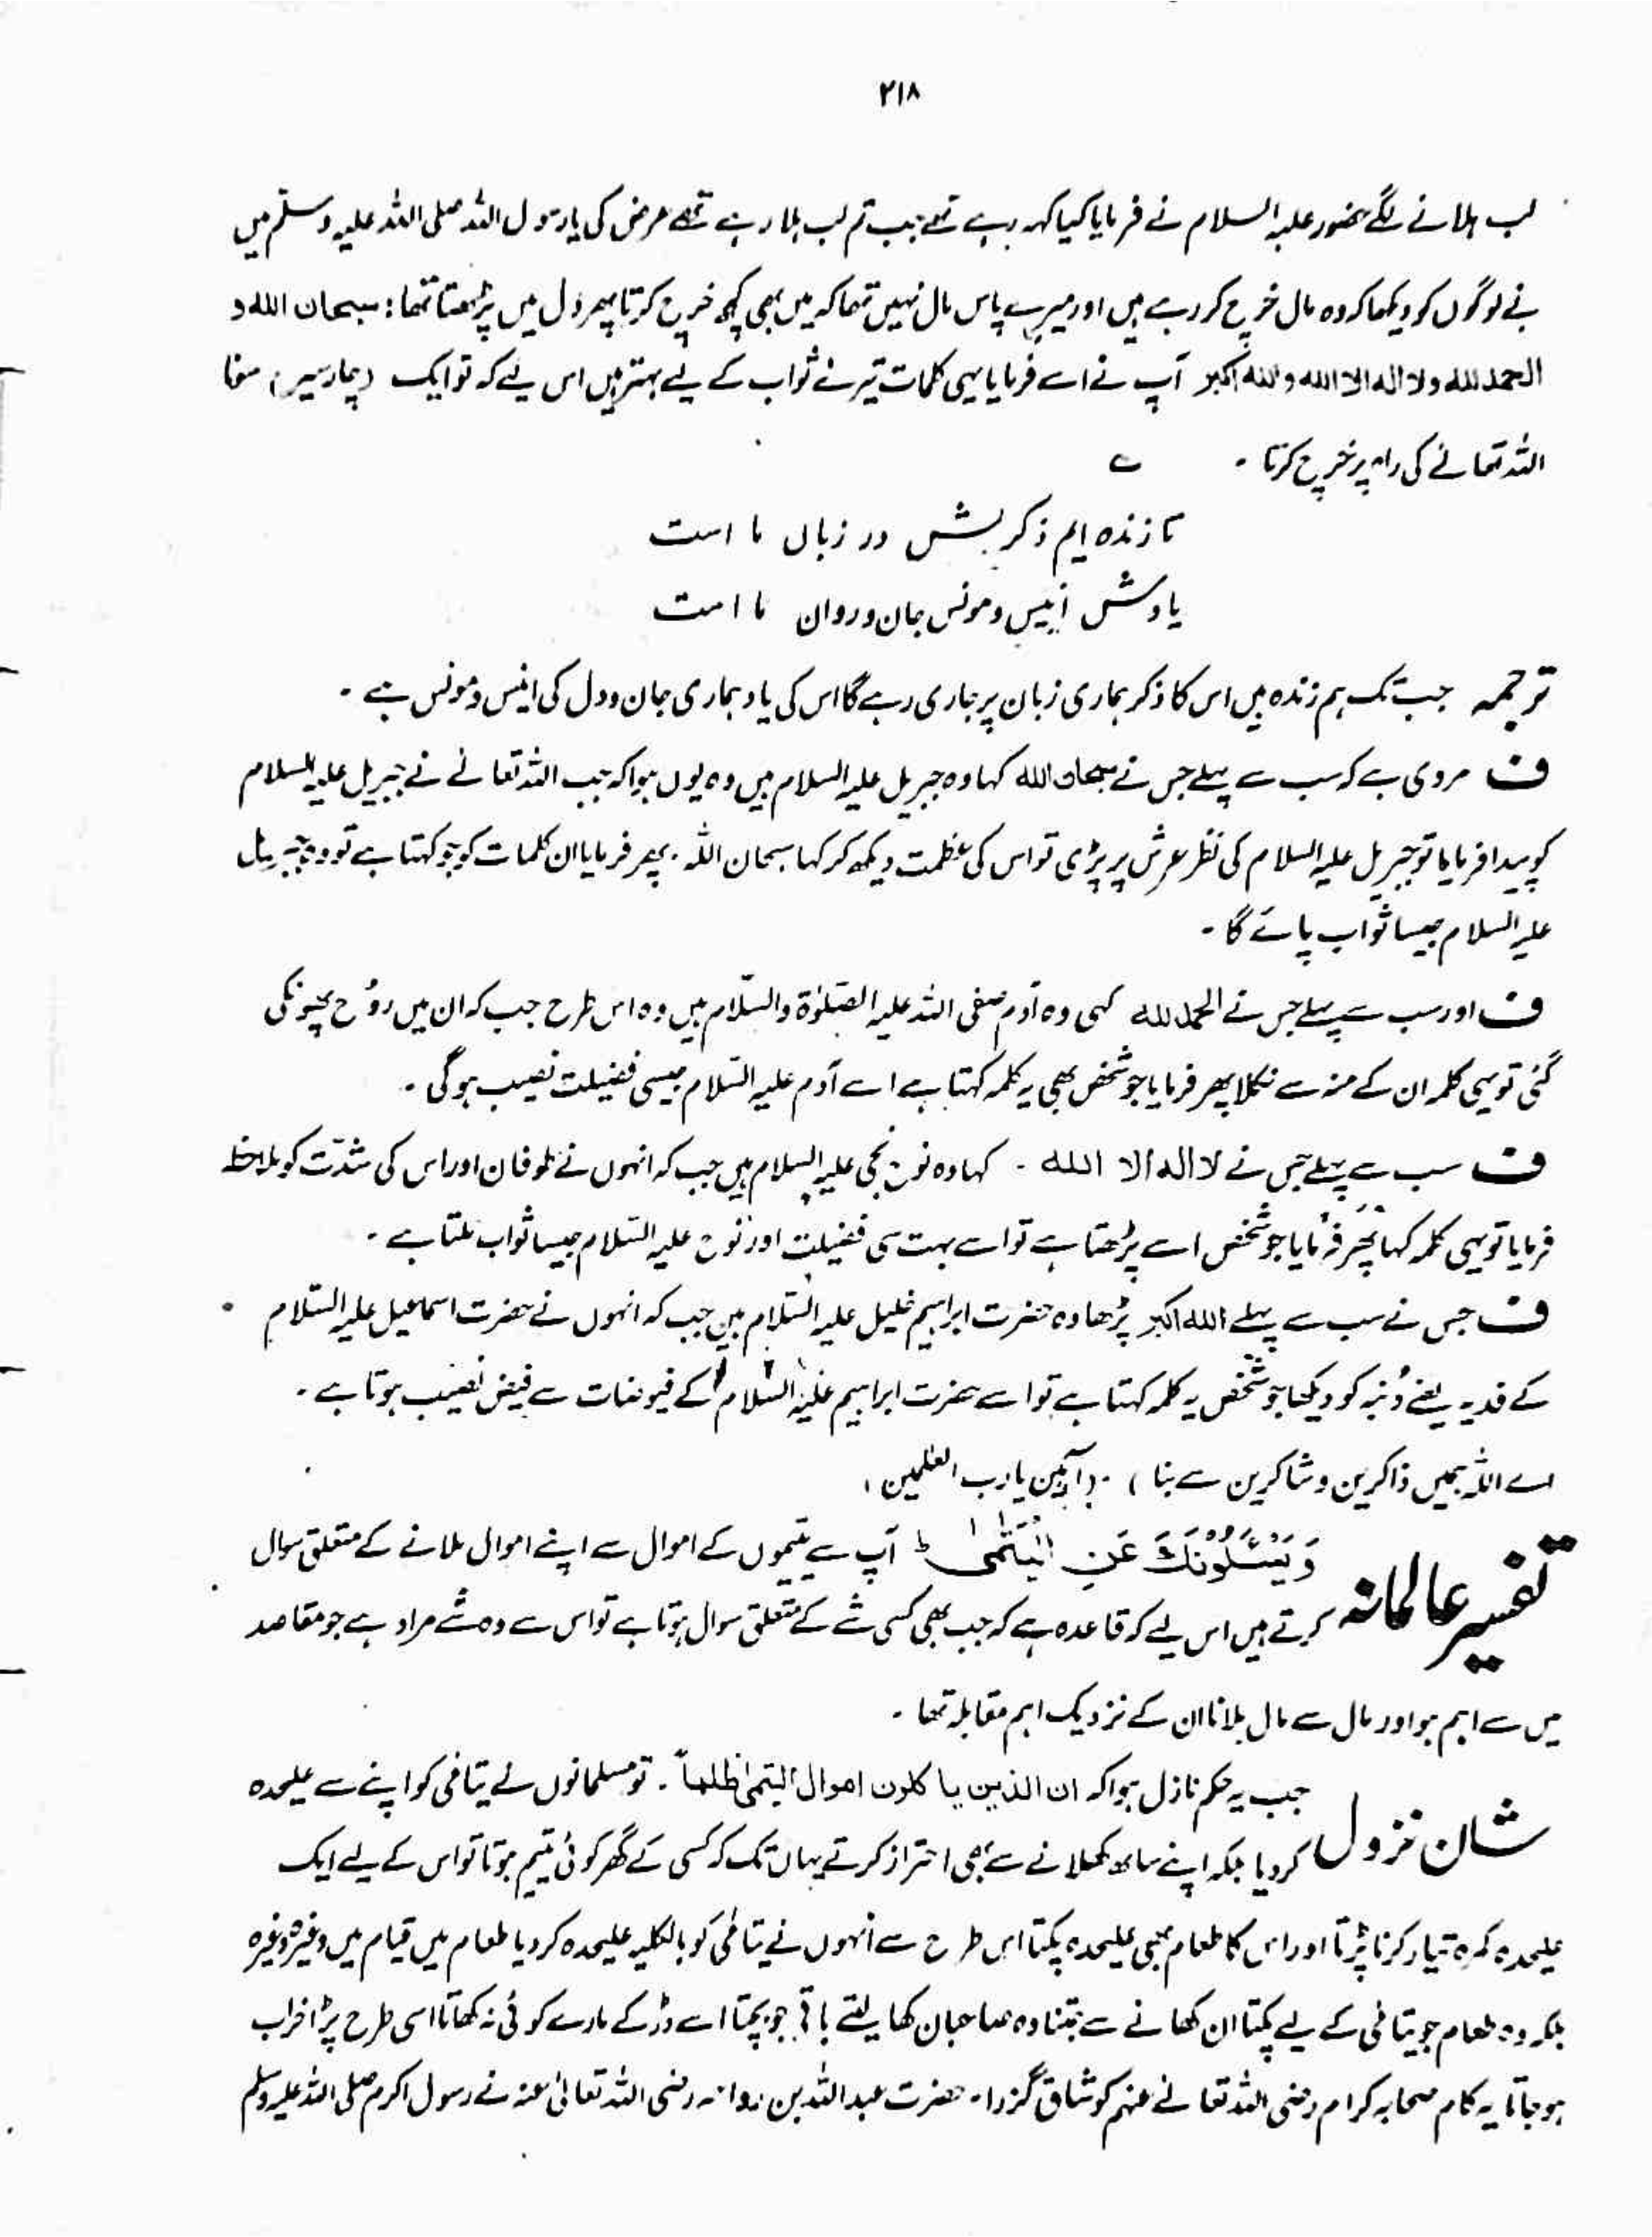 ۲۱۸
لب ہلانے لگے حضور علیہ السلام نے فرمایا کیا کہہ رہے تھے جب تم لب ہلا رہے تھے عرض کی یا رسول اللہ صلی اللہ علیہ وسلم میں
نے لوگوں کو دیکھا کہ وہ مال خرچ کر رہے ہیں اور میرے پاس مال نہیں تھا کہ میں بھی کچھ خرچ کرتا پھر دل میں پڑھتا تھا: سبحان اللہ و
الحمد للہ ولا الہ الا اللہ و اللہ اکبر آپ نے اسے فرمایا یہی کلمات تیرے ثواب کے لیے بہتر ہیں اس لیے کہ تو ایک (چار سیر) سونا
اللہ تعالےٰ کی راہ پر خرچ کرتا ۔ ے
تا زندہ ایم ذکرش در زباں ما است
یادش انیس و مونس جان و روان ما است
ترجمہ جب تک ہم زندہ ہیں اس کا ذکر ہماری زبان پر جاری رہے گا اس کی یاد ہماری جان و دل کی انیس و مونس ہے ۔
ف مروی ہے کہ سب سے پہلے جس نے سبحان اللہ کہا وہ جبریل علیہ السلام ہیں وہ یوں ہوا کہ جب اللہ تعالےٰ نے جبریل علیہ السلام
کو پیدا فرمایا تو جبریل علیہ السلام کی نظر عرش پر پڑی تو اس کی عظمت دیکھ کر کہا سبحان اللہ ۔ پھر فرمایا ان کلمات کو جو کہتا ہے تو وہ جبریل
علیہ السلام جیسا ثواب پائے گا ۔
ف اور سب سے پہلے جس نے الحمد للہ کہی وہ آدم صفی اللہ علیہ الصلوٰۃ والسلام ہیں وہ اس طرح جب کہ ان میں روح پھونکی
گئی تو یہی کلمہ ان کے منہ سے نکلا پھر فرمایا جو شخص بھی یہ کلمہ کہتا ہے اسے آدم علیہ السلام جیسی فضیلت نصیب ہوگی ۔
ف سب سے پہلے جس نے لا الہ الا اللہ ۔ کہا وہ نوح نجی علیہ السلام ہیں جب کہ انہوں نے طوفان اور اس کی شدّت کو ملاحظہ
فرمایا تو یہی کلمہ کہا پھر فرمایا جو شخص اسے پڑھتا ہے تو اسے بہت سی فضیلت اور نوح علیہ السلام جیسا ثواب ملتا ہے ۔
ف جس نے سب سے پہلے اللہ اکبر پڑھا وہ حضرت ابراہیم خلیل علیہ السلام ہیں جب کہ انہوں نے حضرت اسماعیل علیہ السلام
کے فدیہ یعنے دُنبہ کو دیکھا جو شخص یہ کلمہ کہتا ہے تو اسے حضرت ابراہیم علیہ السلام کے فیوضات سے فیض نصیب ہوتا ہے ۔
اے اللہ ہمیں ذاکرین و شاکرین سے بنا ) ۔ (آمین یا رب العٰلمین)
تفسیر عالمانہ وَيَسْـَٔلُوْنَكَ عَنِ الْيَتٰمٰى ؕ آپ سے یتیموں کے اموال سے اپنے اموال ملانے کے متعلق سوال
کرتے ہیں اس لیے کہ قاعدہ ہے کہ جب بھی کسی شے کے متعلق سوال ہوتا ہے تو اس سے وہ شے مراد ہے جو مقاصد
میں سے اہم ہو اور مال سے مال ملانا ان کے نزدیک اہم مقابلہ تھا ۔
شان نزول جب یہ حکم نازل ہوا کہ ان الذین یاکلون اموال الیتمیٰ ظلماً ۔ تو مسلمانوں نے یتامٰی کو اپنے سے علیحدہ
کردیا بلکہ اپنے ساتھ کھلانے سے بھی احتراز کرتے یہاں تک کہ کسی کے گھر کوئی یتیم ہوتا تو اس کے لیے ایک
علیحدہ کمرہ تیار کرنا پڑتا اور اس کا طعام بھی علیحدہ پکتا اس طرح سے انہوں نے یتامٰی کو بالکلیہ علیحدہ کر دیا طعام میں قیام میں وغیرہ وغیرہ
بلکہ وہ طعام جو یتامٰی کے لیے پکتا ان کھانے سے جتنا وہ صاحبان کھا لیتے باقی جو بچتا اسے ڈر کے مارے کوئی نہ کھاتا اسی طرح پڑا خراب
ہو جاتا یہ کام صحابہ کرام رضی اللہ تعالےٰ عنہم کو شاق گزرا ۔ حضرت عبد اللہ بن رواحہ رضی اللہ تعالیٰ عنہ نے رسول اکرم صلی اللہ علیہ وسلم